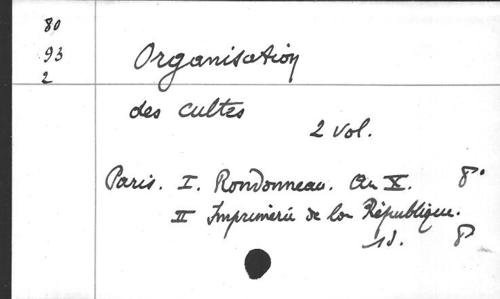 80
93
2
Organisation
des cultes
2 vol.
Paris. I. Rondonneau. An X. 8°
II Imprimerie de la République.
1d. 8°